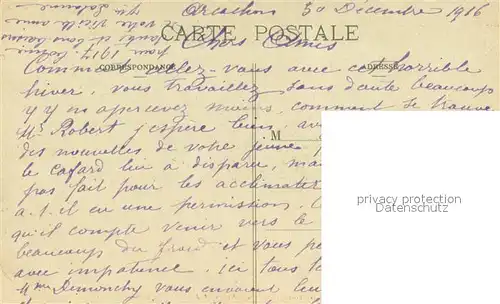 Arcachon 30 Décembre 1916
CARTE POSTALE
Chers Amis
CORRESPONDANCE
ADRESSE
Comment allez-vous avec cet horrible
hiver, vous travaillez sans doute beaucoup
y y m apercevez moins, comment se trouve
Mr Robert j espère bien, av
des nouvelles de votre jeune
M
le cafard lui à disparu, ma
pas fait pour les acclimater
a.t.il eu une permission.
qu'il compte venir vers le
beaucoup du froid et vous
avec impatience. ici tous
Mme Demonchy vous envoient
pour 1917
santé et
votre vieille amie
privacy protection
Datenschutz